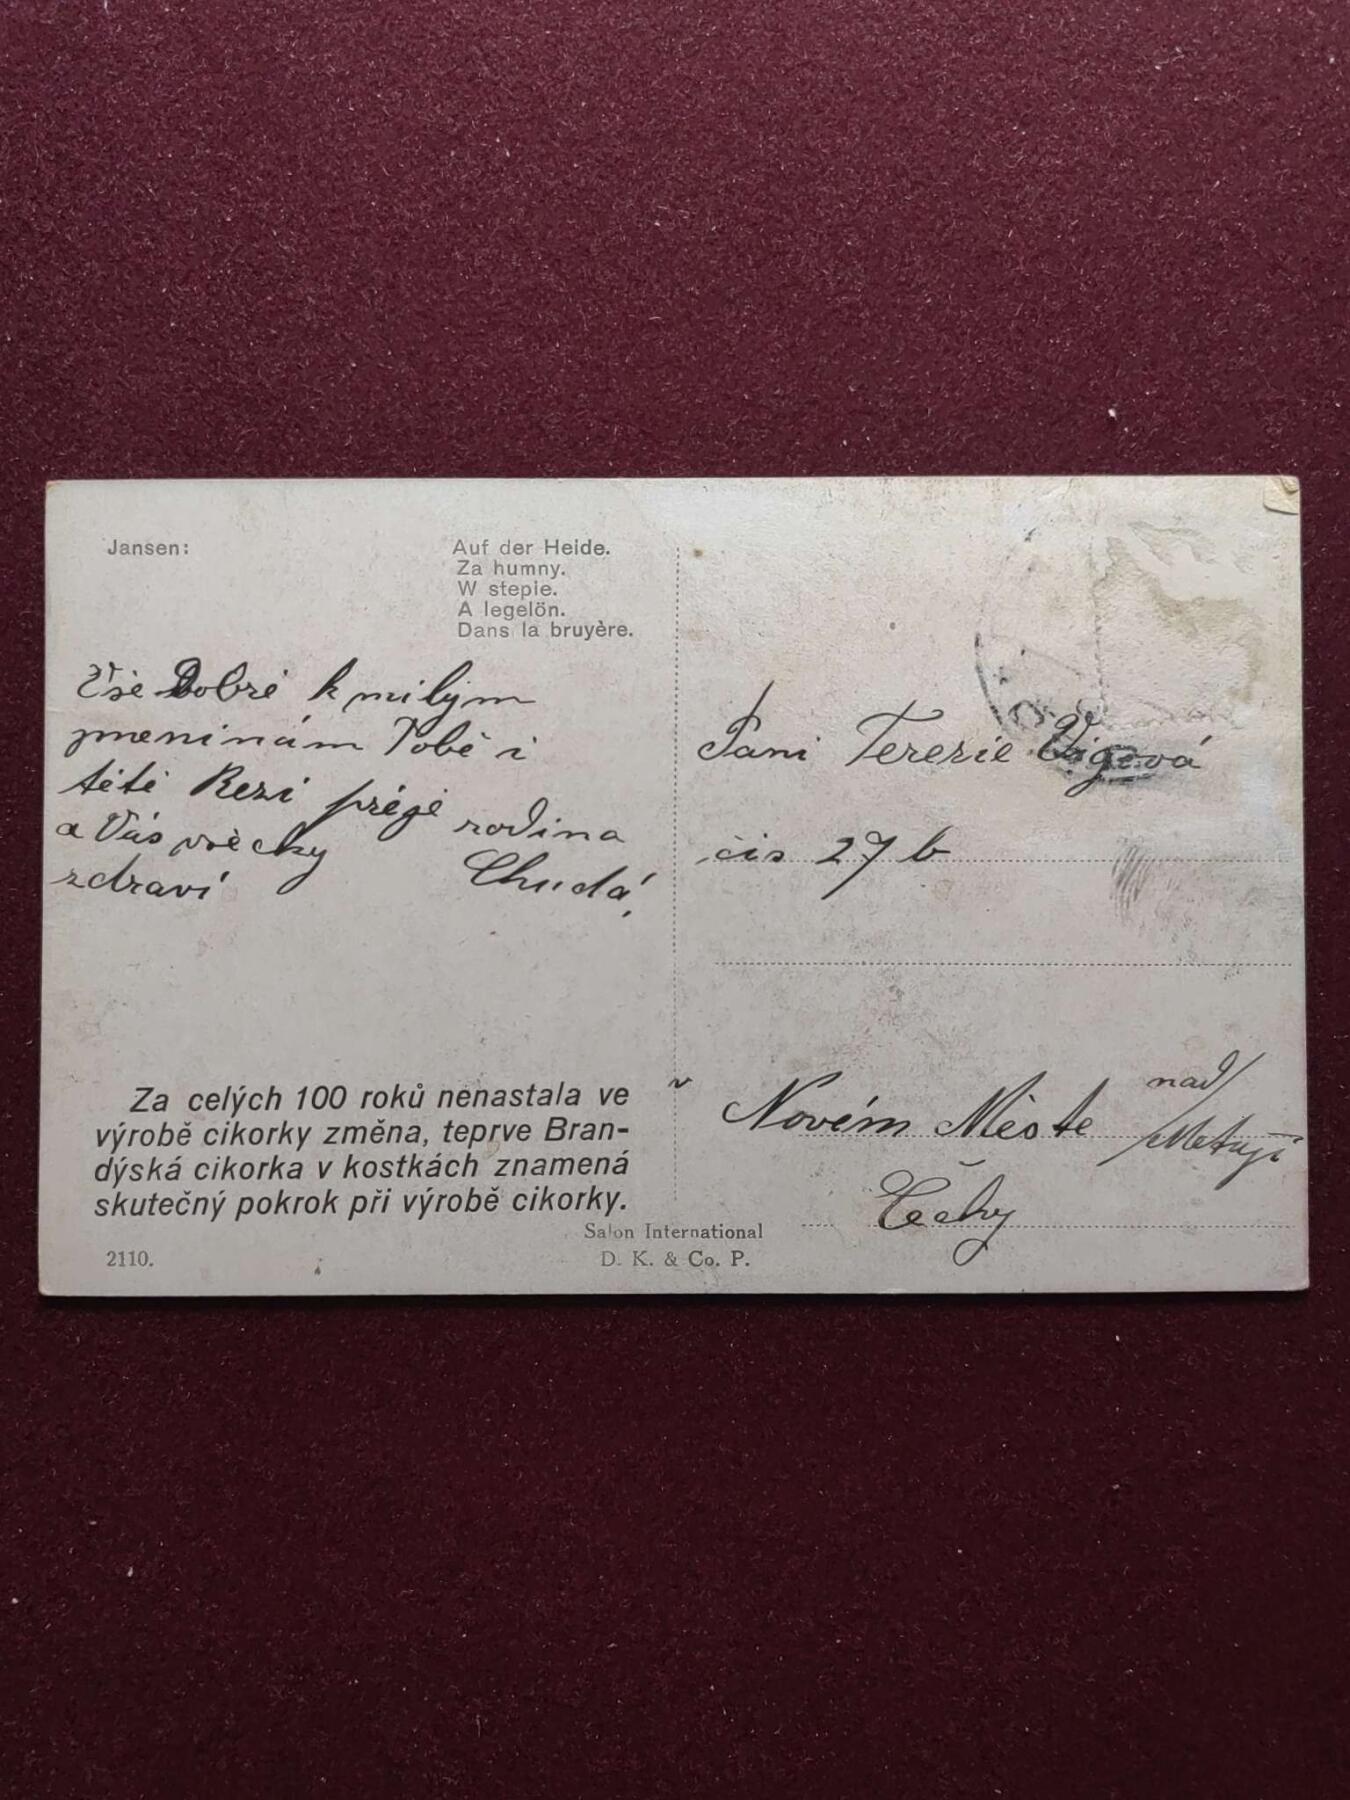 Jansen:
Auf der Heide.
Za humny.
W stepie.
A legelön.
Dans la bruyère.
Vše Dobré k milým
jmeninám Tobě i
tétě Rezi přeje rodina
a Vás všecky
zdraví Chudá,
Paní Terezie Vigová
čis 27 b
v Novém Městě nad/
Metují
Čechy
Za celých 100 roků nenastala ve
výrobě cikorky změna, teprve Bran-
dýská cikorka v kostkách znamená
skutečný pokrok při výrobě cikorky.
2110.
Salon International
D. K. & Co. P.